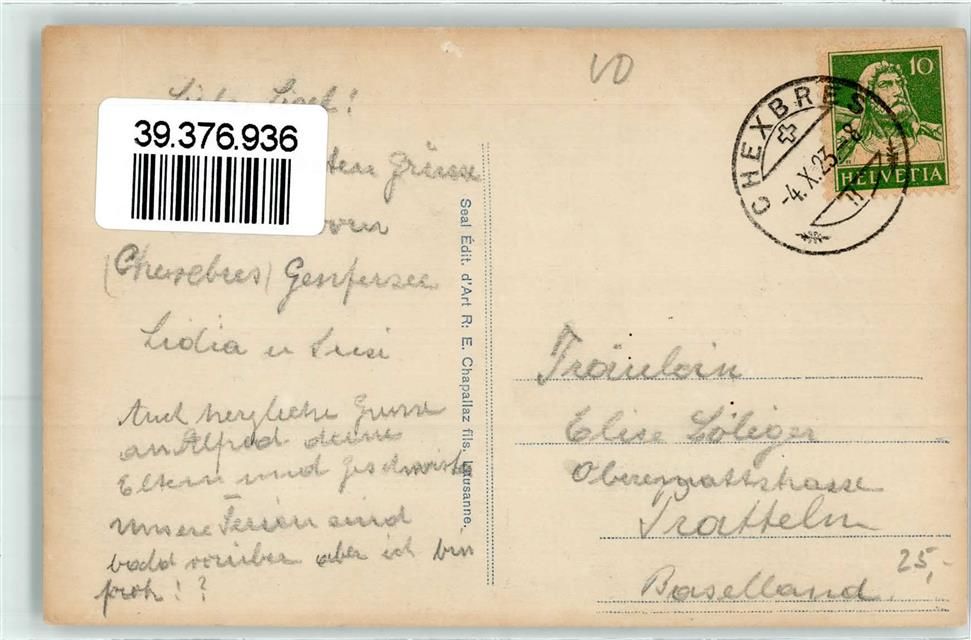 VD
10
HELVETIA
CHEXBRES
-4.X.23.-8
39.376.936
Grüsse
vom
(Chexebres) Genfersee
Lidia u Susi
Auch herzliche Grüsse
an Alfred deine
Eltern und Geschwister
Unsere Ferien sind
bald vorüber aber ich bin
froh! ?
Seal Édit. d'Art R. E. Chapallaz fils, Lausanne.
Fräulein
Elise
Oberemattstrasse
Pratteln
Baselland
25,-